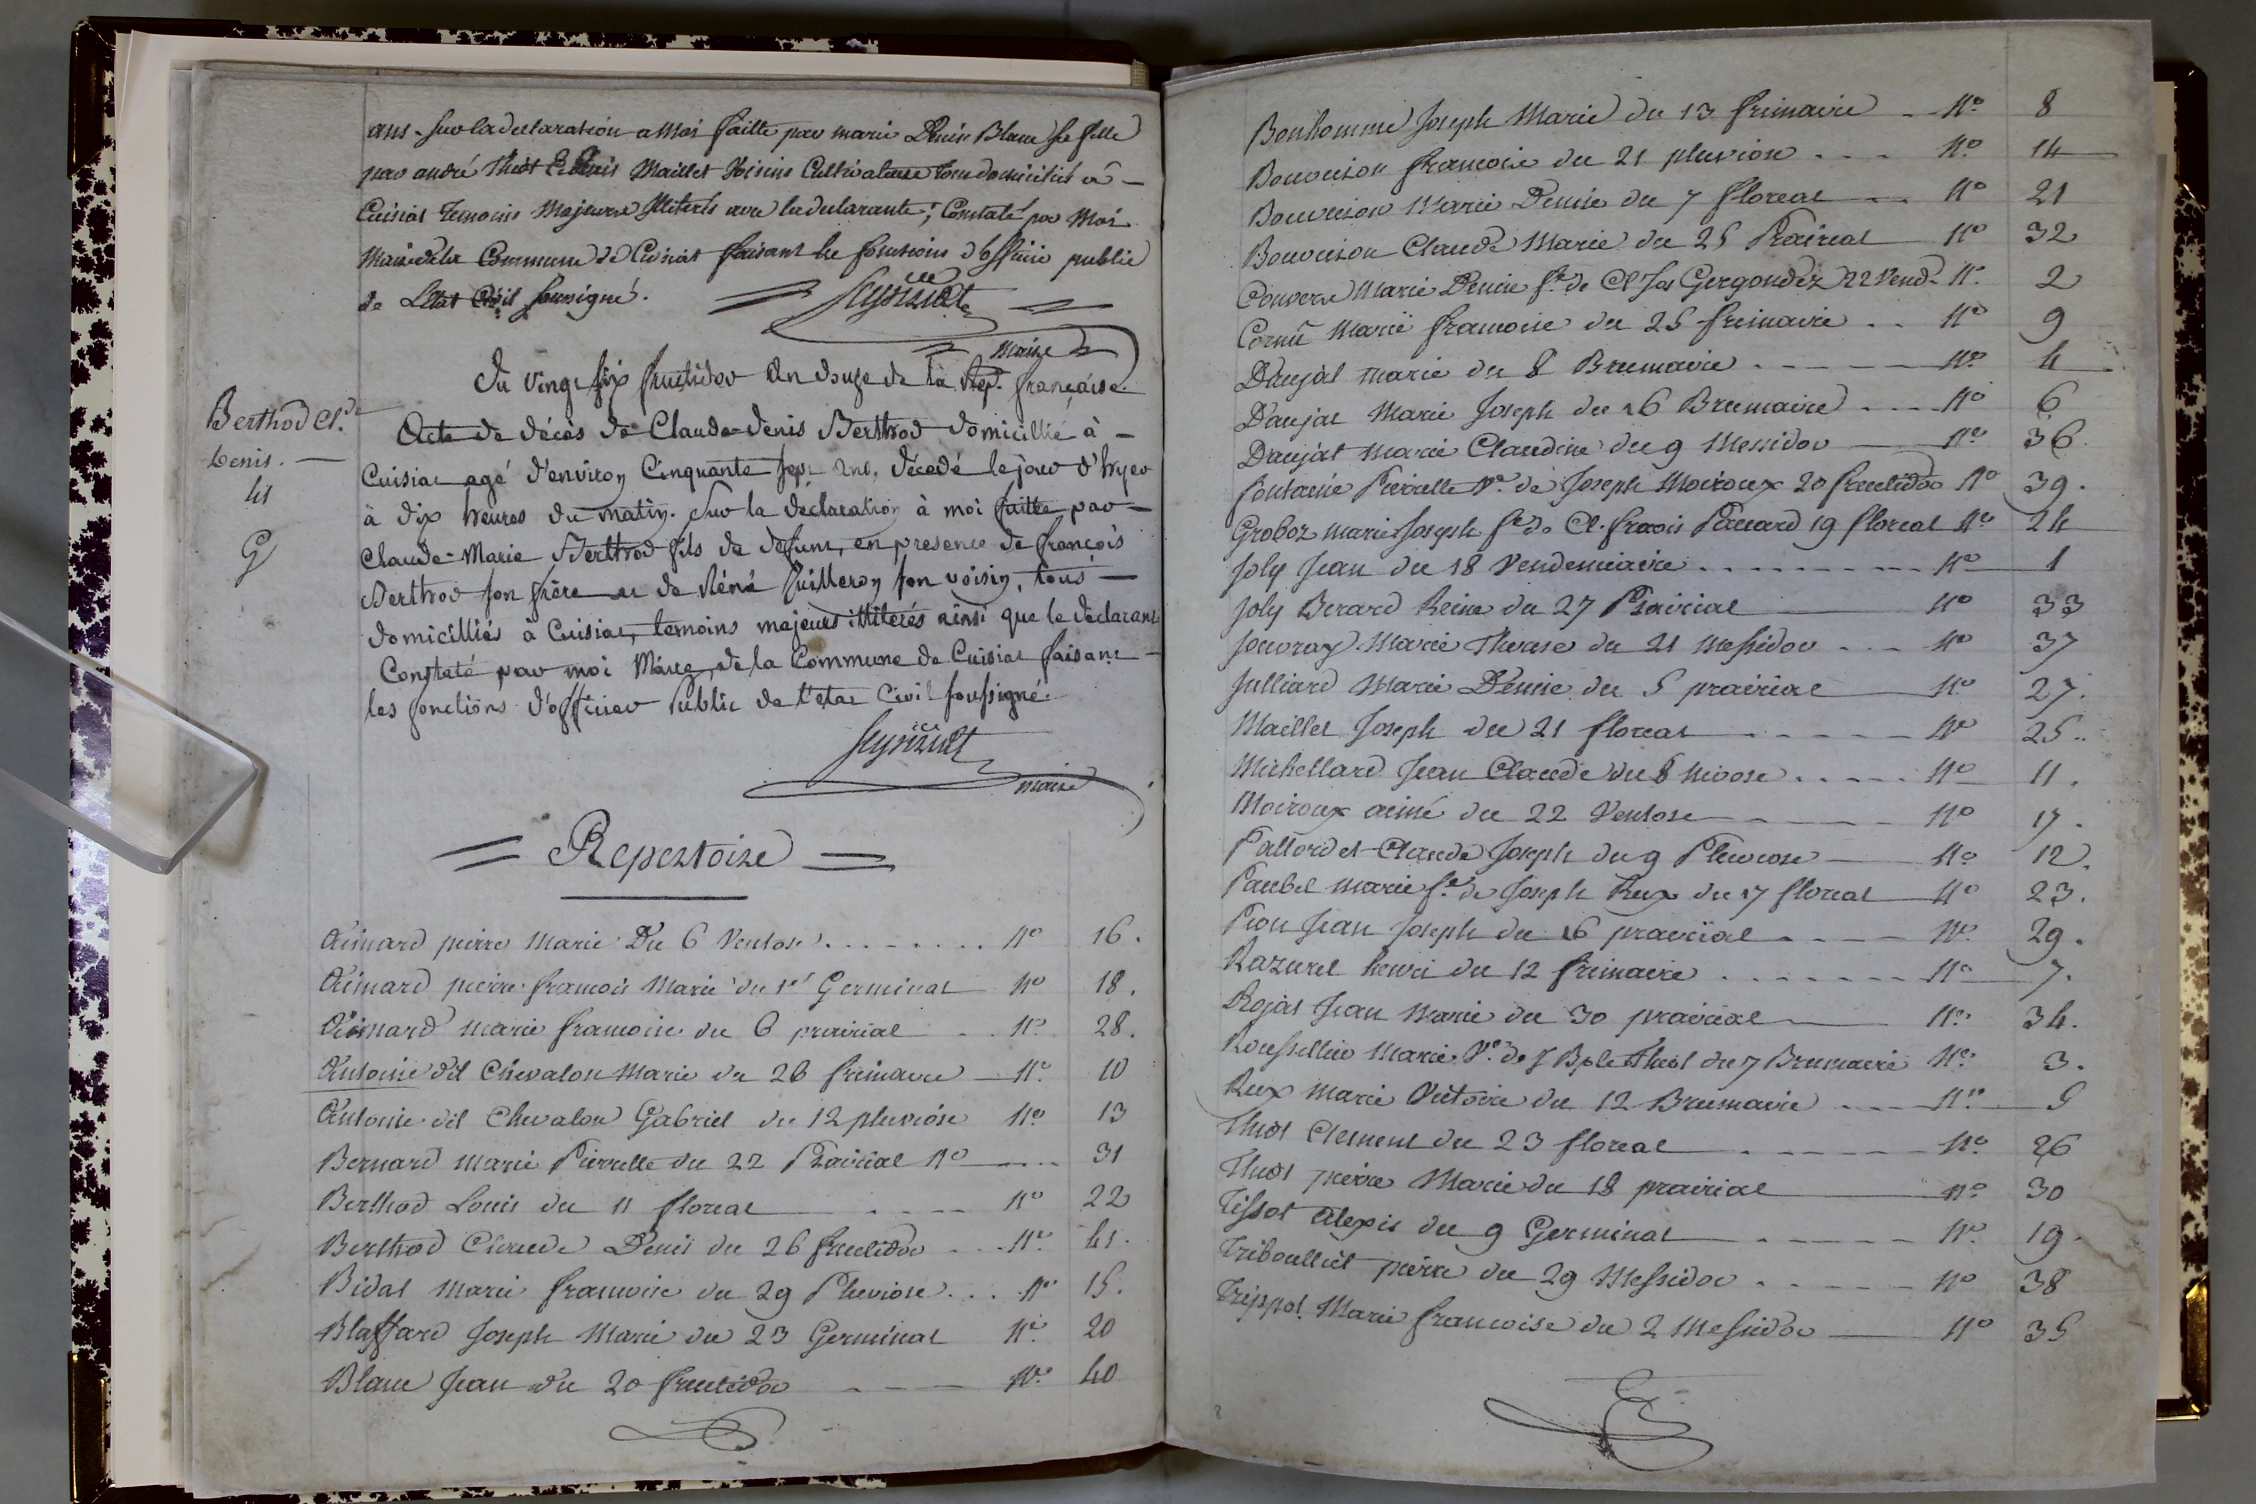 ans. Sur la declaration a Moi faitte par marie Denise Blanc sa fille
par andré Thest & Denis Maillet Voisins Cultivateurs tous domiciliés à —
Cuisiat Temoins Majeurs Illiterés avec la declarante; Constaté par Moi
Maire de la Commune de Cuisiat faisant les fonctions d'officier public
de L'Etat Civil Soussigné.
maire
Du vingt six fructidor an douze de la Rep. française.
Berthod Cl.de
Denis. —
41
Acte de décès de Claude-Denis Berthod domicillié à —
Cuisiat agé d'environ Cinquante sept ans, décédé le jour d'hyer
à dix heures du matin. Sur la declaration à moi faitte par —
Claude-Marie Berthod fils du defunt, en presence de françois
Berthod son frère et de Réné Guilleron son voisin, tous —
domicilliés à Cuisiat, temoins majeurs illiterés ainsi que le declarant
Constaté par moi Maire de la Commune de Cuisiat faisant —
les fonctions d'officier Public de l'etat Civil soussigné.
maire
= Repertoire =
Aimard pierre Marie Du 6 Ventose . . . . . . . . N.o 16.
Aimard pierre francois Marie du 1er Germinal N.o 18.
Aimard marie francoise du 6 prairial . . N.o 28.
Antoine dit Chevalon Marie du 26 frimaire — N.o 10
Antoine dit Chevalon Gabriel du 12 pluviose N.o 13
Bernard Marie Pierrette du 22 Prairial N.o 31
Berthod Louis du 11 floreal N.o 22
Berthod Claude Denis du 26 fructidor . . . N.o 41.
Bidat Marie francoise du 29 Pluviose . . . N.o 15.
Blaffard Joseph Marie du 23 Germinal N.o 20
Blanc Jean du 20 fructidor N.o 40
Bonhomme Joseph Marie du 13 frimaire N.o 8
Bouveison francoise du 21 pluviose N.o 14
Bouveison Marie Denise du 7 floreal N.o 21
Bouveison Claude Marie du 25 Prairial N.o 32
Convers Marie Denise f.e de Cl. Jos Gergondez 22 Vend. N.o 2
Cornu Marie francoise du 25 frimaire . . N.o 9
Daujat marie du 8 Brumaire N.o 4
Daujat Marie Joseph du 16 Brumaire N.o 6
Daujat Marie Claudine du 9 Messidor N.o 36
fontaine Pierrette V.e de Joseph Moiroux 20 fructidor N.o 39.
Groboz marie Joseph f.e de Cl. francois Pauard 19 floreal N.o 24
Joly Jean du 18 Vendemiaire . . . . . . . . . N.o 1
Joly Berard Reine du 27 Prairial N.o 33
Jouvray Marie Therese du 21 Messidor . . . N.o 37
Julliard Marie Denise du 5 prairial N.o 27.
Maillet Joseph du 21 floreal N.o 25..
Michellard Jean Claude du 8 Nivose . . . . . N.o 11.
Moiroux aimé du 22 Ventose N.o 17.
Pallordet Claude Joseph du 9 Pluviose N.o 12.
Paubel marie f.e de Joseph Rux du 17 floreal N.o 23.
Pion Jean Joseph du 16 prairial N.o 29.
Razurel henri du 12 frimaire . . . . . . . N.o 7.
Rojat Jean Marie du 30 prairial N.o 34.
Roussellier Marie V.e de J Bple Thest du 7 Brumaire N.o 3.
Rux Marie Victoire du 12 Brumaire N.o 5
Thest Clement du 23 floreal N.o 26
Thest pierre Marie du 18 prairial N.o 30
Tissot Alexis du 9 Germinal N.o 19.
Triboulliet pierre du 29 Messidor N.o 38
Trippot Marie francoise du 2 Messidor N.o 35